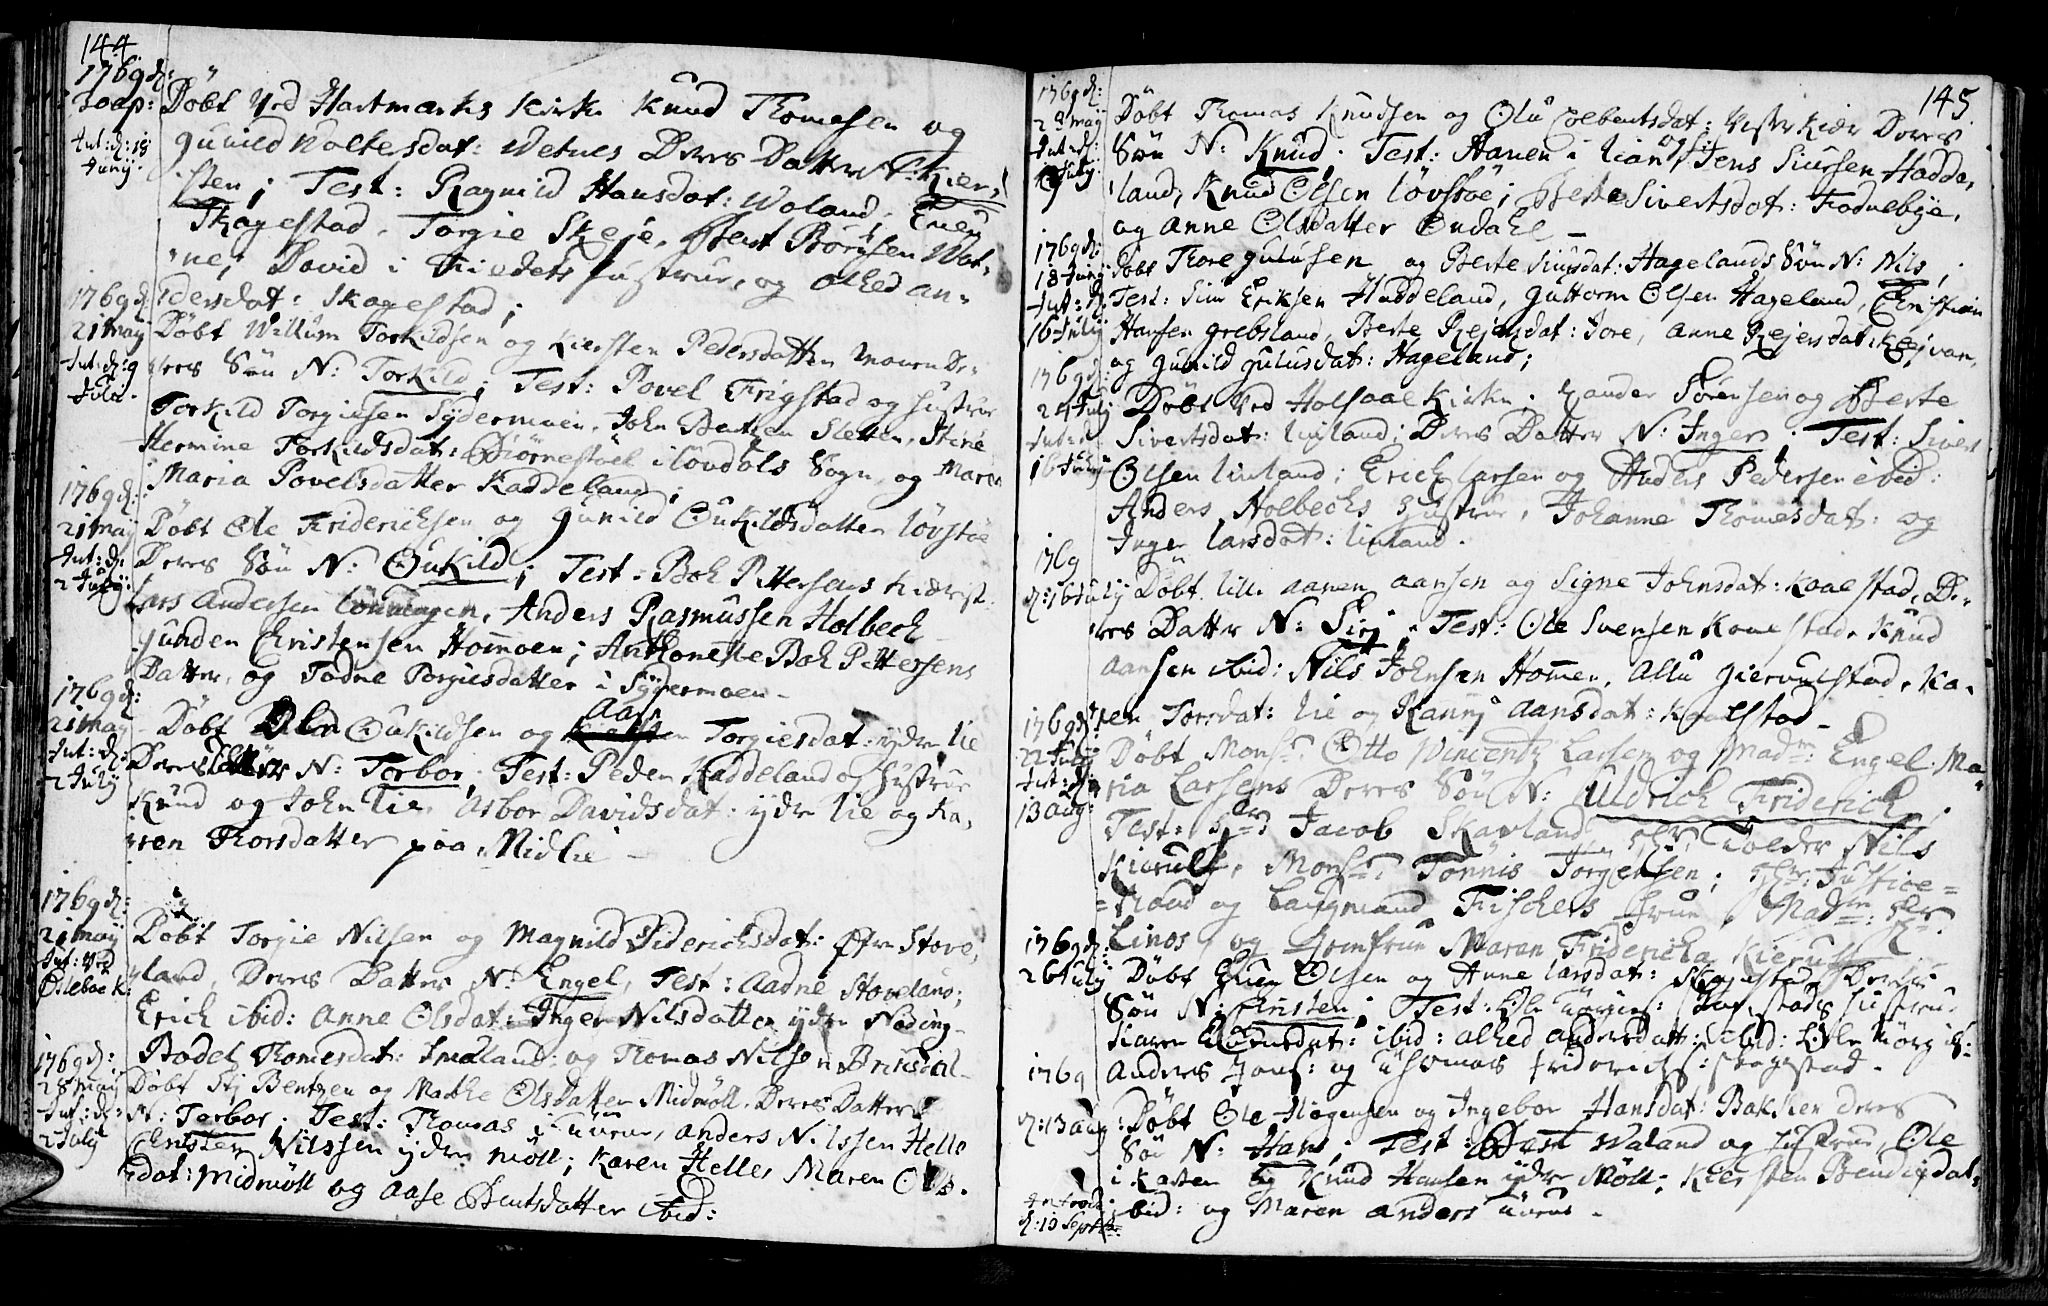 144
1769 d:
30 ap:
Int: d: 18
Junij.
Döbt Ved Hartmarks Kirke Knud Thomesen og
Gunild Nolkesdat: Wetnes Deres Datter N: Kier,
sten; Test: Ragnild Hansdat: Woland. Enen
Skagestad. Torgie Skeje, Bent Börusen Wat,
ne; David i Hustrue, og Alhed An,
dersdat: Skagestad;
1769 d:
21 maij
Int: d: 9
Julij.
Döbt Willum Torkildsen og Kiersten Pedersdatter Moven De,
res Sön N: Torkild; Test: Povel Frigstad og Hustrue
Torkild Torgiesen Sydermoen, John Bentzen Sletten, Stine
Hermine Torkildsdat: Biörnestöel i Lovdals Sogn, og Maren
Maria Povelsdatter Kaddeland;
1769 d:
21 maij
Int: d:
2 Julij:
Döbt Ole Friderichsen og Gunild Oukildsdatter Lövstöe
Deres Sön N: Oukild; Test: Boh Pettersens Kiærest
Lars Andersen Lönningen, Anders Rasmussen Holbeck
Gunden Christensen Homoen; Anthonette Boh Pettersens
Datter, og Todne Torgiesdatter i Sydermoen -
1769 d:
21 maij
Int: d:
2 Julij
Döbt Ole Oukildsen og Aase Torgiesdat: ydre Lie
Deres Datter N: Torbor; Test: Peder Kaddeland og Hustrue
Knud og John Lie, Asbor Davidsdat: ydre Lie og Ka,
ren Thorsdatter paa Midlie -
1769 d:
21 maij
Int: Ved
Ösleböe K:
Döbt Torgie Nilsen og Magnild Diderichsdat: Öfre Stove,
land, Deres Datter N: Engel, Test: Aadne Stoveland;
Erich ibid: Anne Olsdat: Inger Nilsdatter ydre Nöding
Bodel Thomesdat: Smaland: og Thomas Nilsen Briksdal
1769 d:
28 maij
Int: d:
2 Julij
Döbt Stj Bentzen og Marthe Olsdatter Midmöll. Deres Datter
N: Torbor; Test: Thomas i Tuuene, Anders Nilssen Helle
Christen Nilssen ydre Möll; Karen Helles Maren Ols,
dat: Midmöll og Aase Bentsdatter ibid:
145
1769 d:
28 maij
Int: d:
9 Julij
Döbt Thomas Knudsen og Olu Colbentsdat: Vesterkier Deres
Sön N: Knud; Test: Hanen i Lian, Jens Siursen Hadde,
land, Knud Olsen Lövstöe; Berte Sivertsdat: Fodnebye,
og Anne Olsdatter Öndahl -
1769 d:
18 Junij
Int: d:
16 Julij
Döbt Thore Gulusen og Berte Siursdat: Hagelands Sön N: Nils;
Test: Siur Eriksen Haddeland, Guttorm Olsen Hageland, Christian
Hansen Grebsland, Berte Rejersdat: Jore, Anne Rejersdat: Rejvar,
og Gunild Gulusdat: Hageland;
1769 d:
24 Julij
Int: d:
16 Julij
Döbt Ved Holsaae Kirke; Zander Sörensen og Berte
Sivertsdat: Linland; Deres Datter N: Inger; Test: Siver
Olsen Linland; Erich Larsen og Anders Pedersen ibid:
Anders Holbechs Hustrue, Johanne Thomesdat: og
Inger Larsdat: Linland.
1769
d: 16 Julij
Döbt Lille Aanen Aansen og Signe Johnsdat: Kaalstad, De,
res Datter N: Sirj; Test: Ole Svensen Kaalstad, Knud
Aansen ibid: Nils Johnsen Homen, Allu Giervulstad, Ka,
ren Torsdat: Lie og Ranny Aansdat: Kaalstad -
1769 d:
22 Julij
Int: d:
13 aug:
Döbt Monsr: Otto Vincentz Larsen og Madm: Engel Ma,
ria Larsens Deres Sön N: Uldrich Friderich;
Test: Hr: Jacob Skavland, Hr: Tolder Nils
Kierulf, Monsr: Tönnis Jörgensen; Hr: Justice=
Raad og Laugmand Fischers Frue, Madm: Hr:
Linos, og Jomfrue Maren Friderica Kierulf -
1769 d:
26 Julij
Döbt Enen Olsen og Anne Larsdat: Skagestad Deres
Sön N: Christen; Test: Ole Skagestads Hustrue,
Karen ibid: Alhed Andersdatt: ibid:
Anders og Thomas Friderichs: Skagestad.
1769
d: 13 aug:
Döbt Ole Aagensen og Ingebor Hansdat: Bakken deres
Sön N: Hans; Test: Bent Waland og Hustrue, Ole
i Katen og Knud Hansen ydre Möll; Kiersten Bendixdat:
ibid: og Maren Anders Tuuene -
Introd:
d: 10 Septbr: